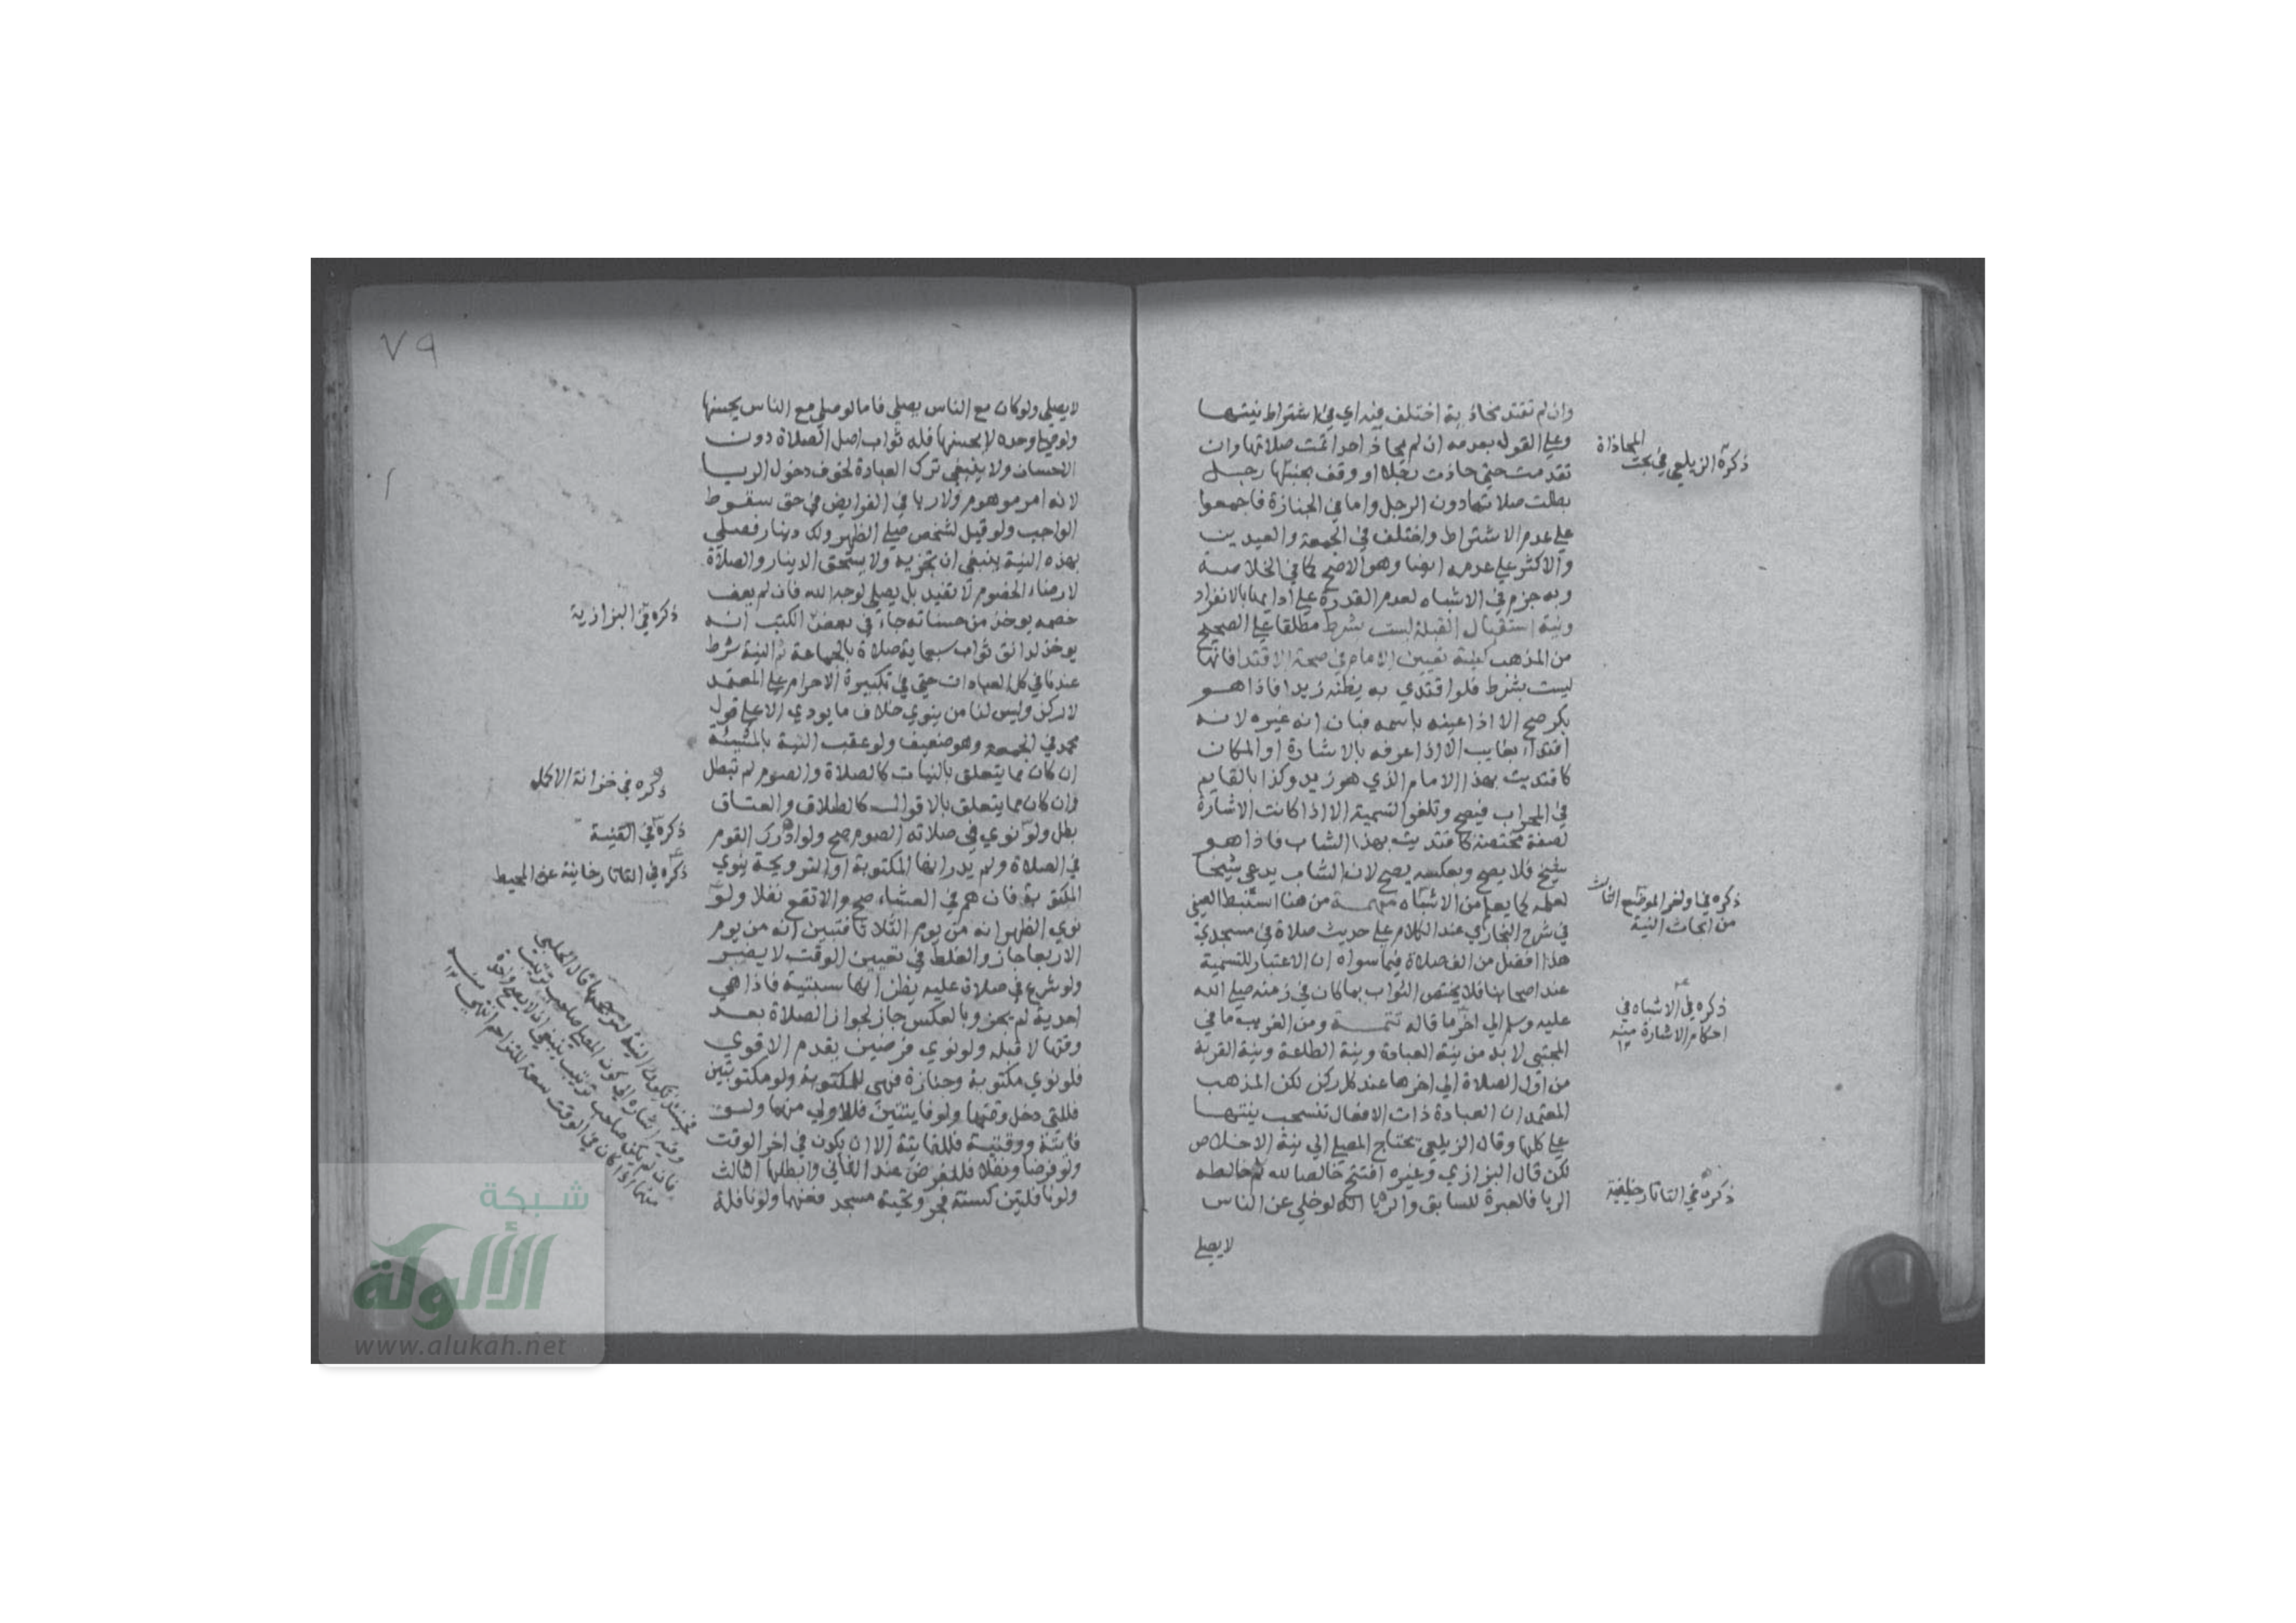 وان لم تقتد محاذية اختلف فيه اي في اشتراط نيتها
وعلي القول بعدمه ان لم يحاذ احدا تمت صلاتها وان
تقدمت حتي حاذت رجلا او وقف بجنبها رجل
بطلت صلاتها دون الرجل واما في الجنازة فاجمعوا
علي عدم الاشتراط واختلف في الجمعة والعيدين
والاكثر علي عدمه ايضا وهو الاصح كما في الخلاصة
وبه جزم في الاشباه لعدم القدرة علي ادايها بالانفراد
ونية استقبال القبلة ليست بشرط مطلقا علي الصحيح
من المذهب كنية تعيين الامام في صحة الاقتدا فانها
ليست بشرط فلو اقتدي به يظنه زيدا فاذا هو
بكر صح الا اذا عينه باسمه فبان انه غيره لانه
اقتداء بغايب الا اذا عرفه بالاشارة او المكان
كاقتديت بهذا الامام الذي هو زيد وكذا بالقايم
في المحراب فيصح وتلغو التسمية الا اذا كانت الاشارة
لصفة مختصة كاقتديت بهذا الشاب فاذا هو
شيخ فلا يصح وبعكسه يصح لان الشاب يدعي شيخا
لعلمه كما يعلم من الاشباه مهمة من هنا استنبط العيني
في شرح البخاري عند الكلام علي حديث صلاة في مسجدي
هذا افضل من الف صلاة فيما سواه ان الاعتبار للتسمية
عند اصحابنا فلا يختص الثواب بما كان في زمنه صلي الله
عليه وسلم الي اخر ما قاله تتمة ومن الغريب ما في
المجتبي لابد من نية العبادة ونية الطاعة ونية القربة
من اول الصلاة الي اخرها عند كل ركن لكن المذهب
المعتمد ان العبادة ذات الافعال تنسحب نيتها
علي كلها وقال الزيلعي يحتاج المصلي الي نية الاخلاص
لكن قال البزازي وغيره افتتح خالصا لله ثم خالطه
الريا فالعبرة للسابق والريا انه لو خلي عن الناس
لا يصلي
ذكره الزيلعي في بحث المحاذاة
ذكره في اواخر الموضع الثالث
من ابحاث النية
ذكره في الاشباه في
احكام الاشارة منه
١٢
ذكره في التاتارخانية
٧٩
لا يصلي ولو كان مع الناس يصلي فاما لو صلي مع الناس يحسنها
ولو صلي وحده لا يحسنها فله ثواب اصل الصلاة دون
الاحسان ولا ينبغي ترك العبادة لخوف دخول الريا
لانه امر موهوم ولا ريا في الفرايض في حق سقوط
الواجب ولو قيل لشخص صلي الظهر ولك دينار فصلي
بهذه النية ينبغي ان تجزيه ولا يستحق الدينار والصلاة
لارضاء الخصوم لا تفيد بل يصلي لوجه الله فان لم يعف
خصمه يوخذ من حسناته جاء في بعض الكتب انه
يوخذ لدانق ثواب سبعماية صلاة بالجماعة ثم النية شرط
عندنا في كل العبادات حتي في تكبيرة الاحرام علي المعتمد
لا ركن وليس لنا من ينوي خلاف ما يودي الا علي قول
محمد في الجمعة وهو ضعيف ولو عقب النية بالمشيئة
ان كان مما يتعلق بالنيات كالصلاة والصوم لم تبطل
وان كان مما يتعلق بالاقوال كالطلاق والعتاق
بطل ولو نوي في صلاته الصوم صح ولو ادرك القوم
في الصلاة ولم يدر ايضا المكتوبة او الترويحة ينوي
المكتوبة فان هم في العشاء صح والا تقع نفلا ولو
نوي الظهر انه من يوم الثلاثا فتبين انه من يوم
الاربعا جاز والغلط في تعيين الوقت لا يضر
ولو شرع في صلاة عليه يظن انها سبتية فاذا هي
احدية لم يجز وبالعكس جاز لجواز الصلاة بعد
وقتها لا قبله ولو نوي فرضين يقدم الاقوي
فلو نوي مكتوبة وجنازة فهي للمكتوبة ولو مكتوبتين
فللتي دخل وقتها ولو فايتتين فللاولي منهما ولو
فايتة ووقتية فللفايتة الا ان يكون في اخر الوقت
ولو فرضا ونفلا فللفرض عند الثاني وابطلها الثالث
ولو نافلتين كسنة فجر وتحية مسجد فعنهما ولو نافلة
ذكره في البزازية
ذكره في خزانة الاكمل
ذكره في القنية
ذكره في التاتارخانية عن المحيط
شبكة
الألوكة
www.alukah.net